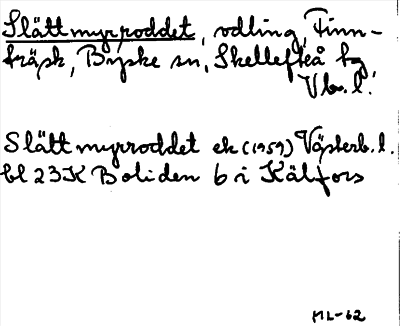 Slättmyrroddet, odling, Finn-
träsk, Byske sn, Skellefteå tg,
Vb.l.
Slättmyrroddet ek (1959) Västerb.l.
bl 23K Boliden 6 i Kälfors
ML-62